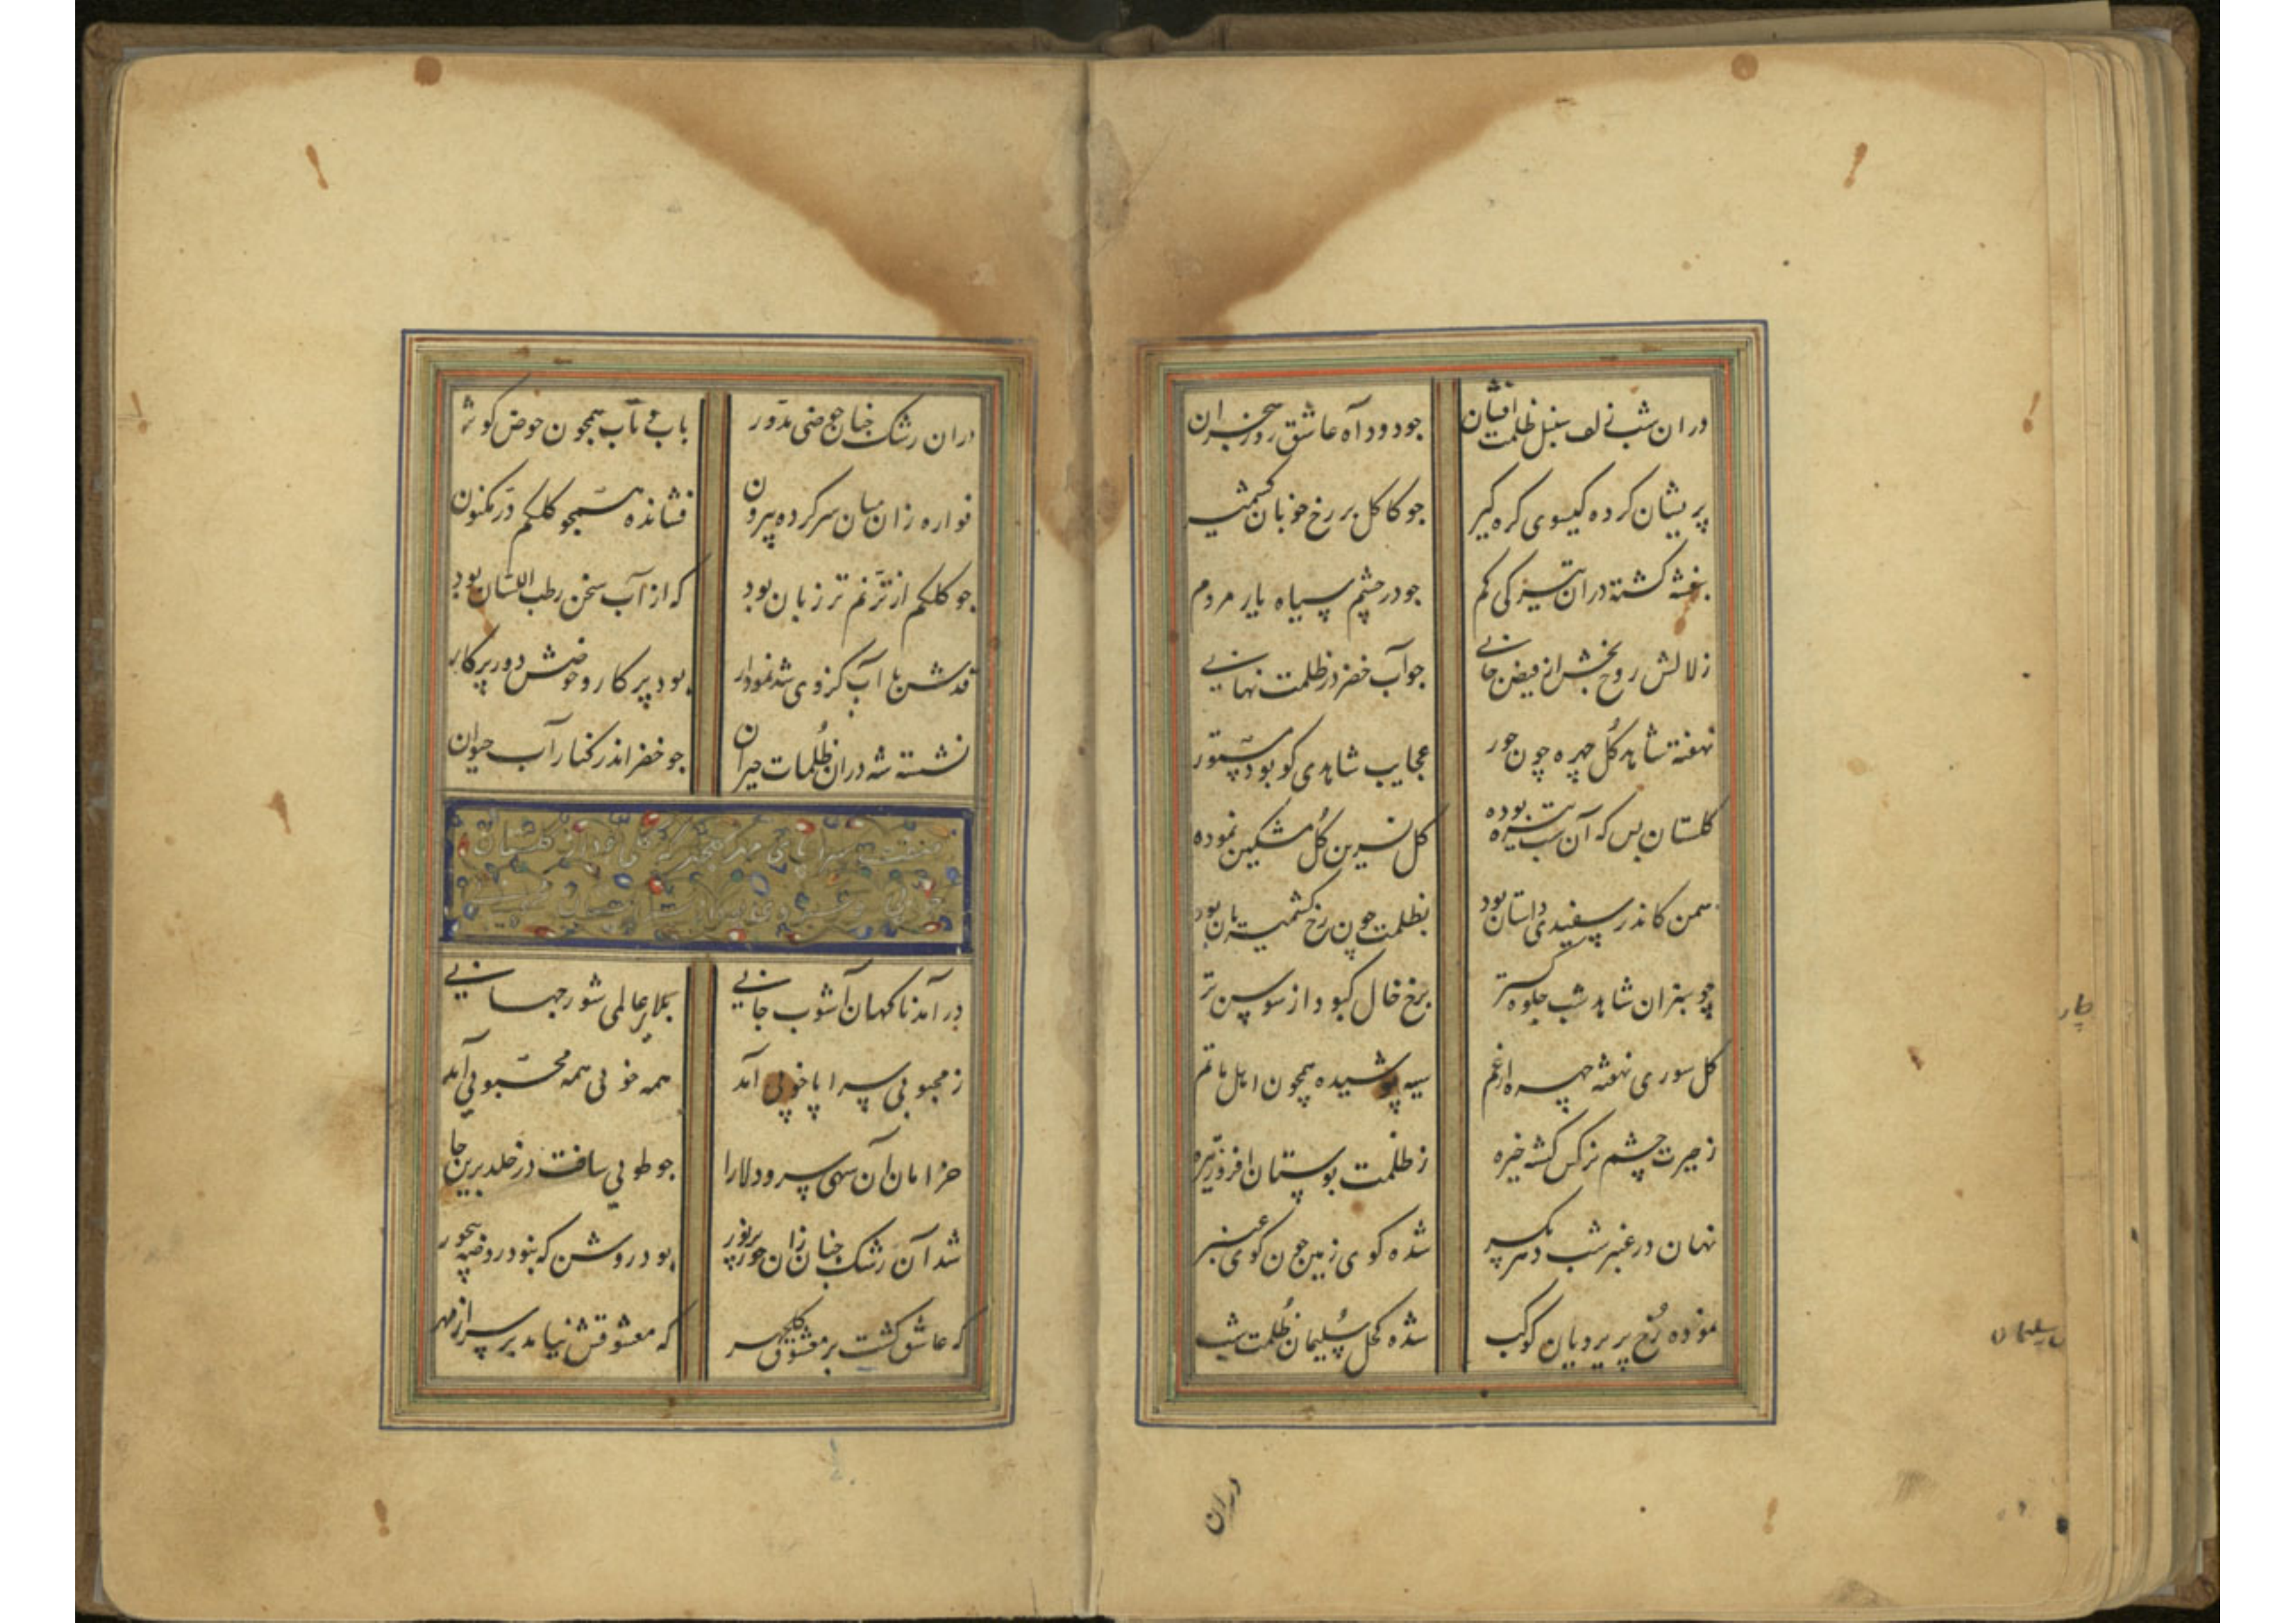 دران شب زلف سنبل ظلمت افشان جو دود آه عاشق روز هجران
پریشان کرده کیسوی کره کیر جو کاکل بر رخ خوبان کشمیر
بنفشه کشته دران تیرکی کم جو در چشم سیاه یار مردم
زلالش روح بخش از فیض جانی جو آب خضر در ظلمت نهانی
نهفته شاهد کل چهره چون حور عجایب شاهدی کو بود مستور
کلستان بس که آن شب تیره بوده کل نسرین کل مشکین نموده
سمن کاندر سفیدی داستان بود بظلمت چون رخ کشمیریان بود
چو سبزان شاهد شب جلوه کستر برخ خال کبود از سوسن تر
کل سوری نهفته چهره از غم سیه پوشیده همچون اهل ماتم
ز حیرت چشم نرکس کشته خیره ز ظلمت بوستان افروز تیره
نهان در عنبر شب شده کوی زمین چون کوی عنبر
نموده رخ پریرویان کوکب شده کحل سلیمان ظلمت شب
دران
دران رشک جنان حوضی مدور باب ناب همچون حوض کوثر
فواره زان میان سر کرده بیرون فشانده همجو کلکم در مکنون
جو کلکم از ترنم تر زبان بود که از آب سخن رطب اللسان بود
قدش با آب کزوی شد نمودار بود پرکار و حوضش دور پرکار
نشسته شه دران ظلمات حیران جو خضر اندر کنار آب حیوان
در آمد ناکهان آشوب جانی بلای عالمی شور جهانی
ز محبوبی سراپا خوبی آمد همه خوبی همه محبوبی آمد
خرامان آن سهی سرو دلارا جو طوبی ساخت در خلد برین جا
شد آن رشک جنان زان حور پر نور بود روشن که بنود روضه بیحور
که عاشق کشت بر معشوق کلچهر که معشوقش نیامد بر سر از مهر